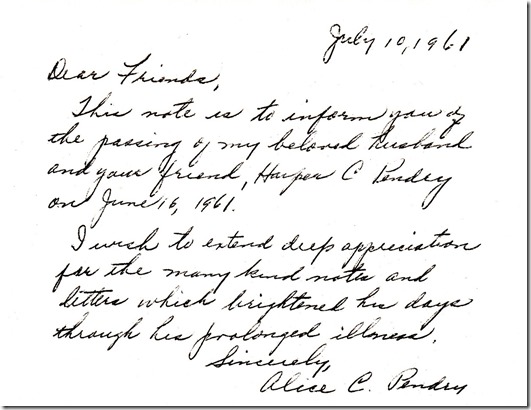 July 10, 1961
Dear Friends,
This note is to inform you of
the passing of my beloved husband
and your friend, Harper C Pendry
on June 16, 1961.
I wish to extend deep appreciation
for the many kind notes and
letters which brightened his days
through his prolonged illness.
Sincerely,
Alice C. Pendry